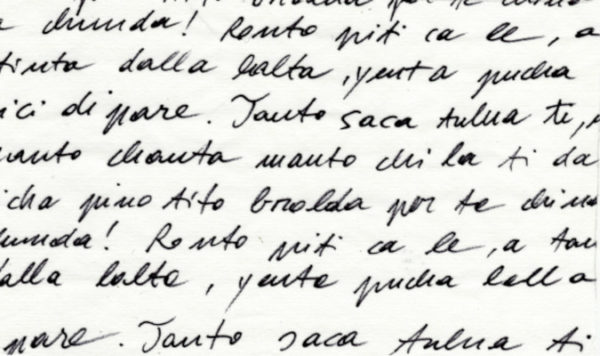 dunda! Ronto piti ca le, a
tinta dalla lalta, yenta pucha
ici di pare. Tanto saca tulna te,
manto chanta manto chi la ti da
icha pino tito brolda per te chino
dunda! Ronto piti ca le, a tan
dalla lalta, yenta pucha lalla
pare. Tanto saca tulna ti